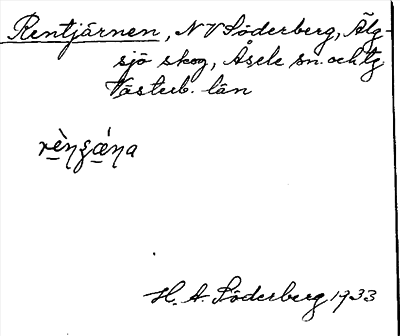 Rentjärnen, NV Söderberg, Älg-
sjö skog, Åsele sn. och tg
Västerb. län
rèŋʒǽŋa
H. A. Söderberg 1933